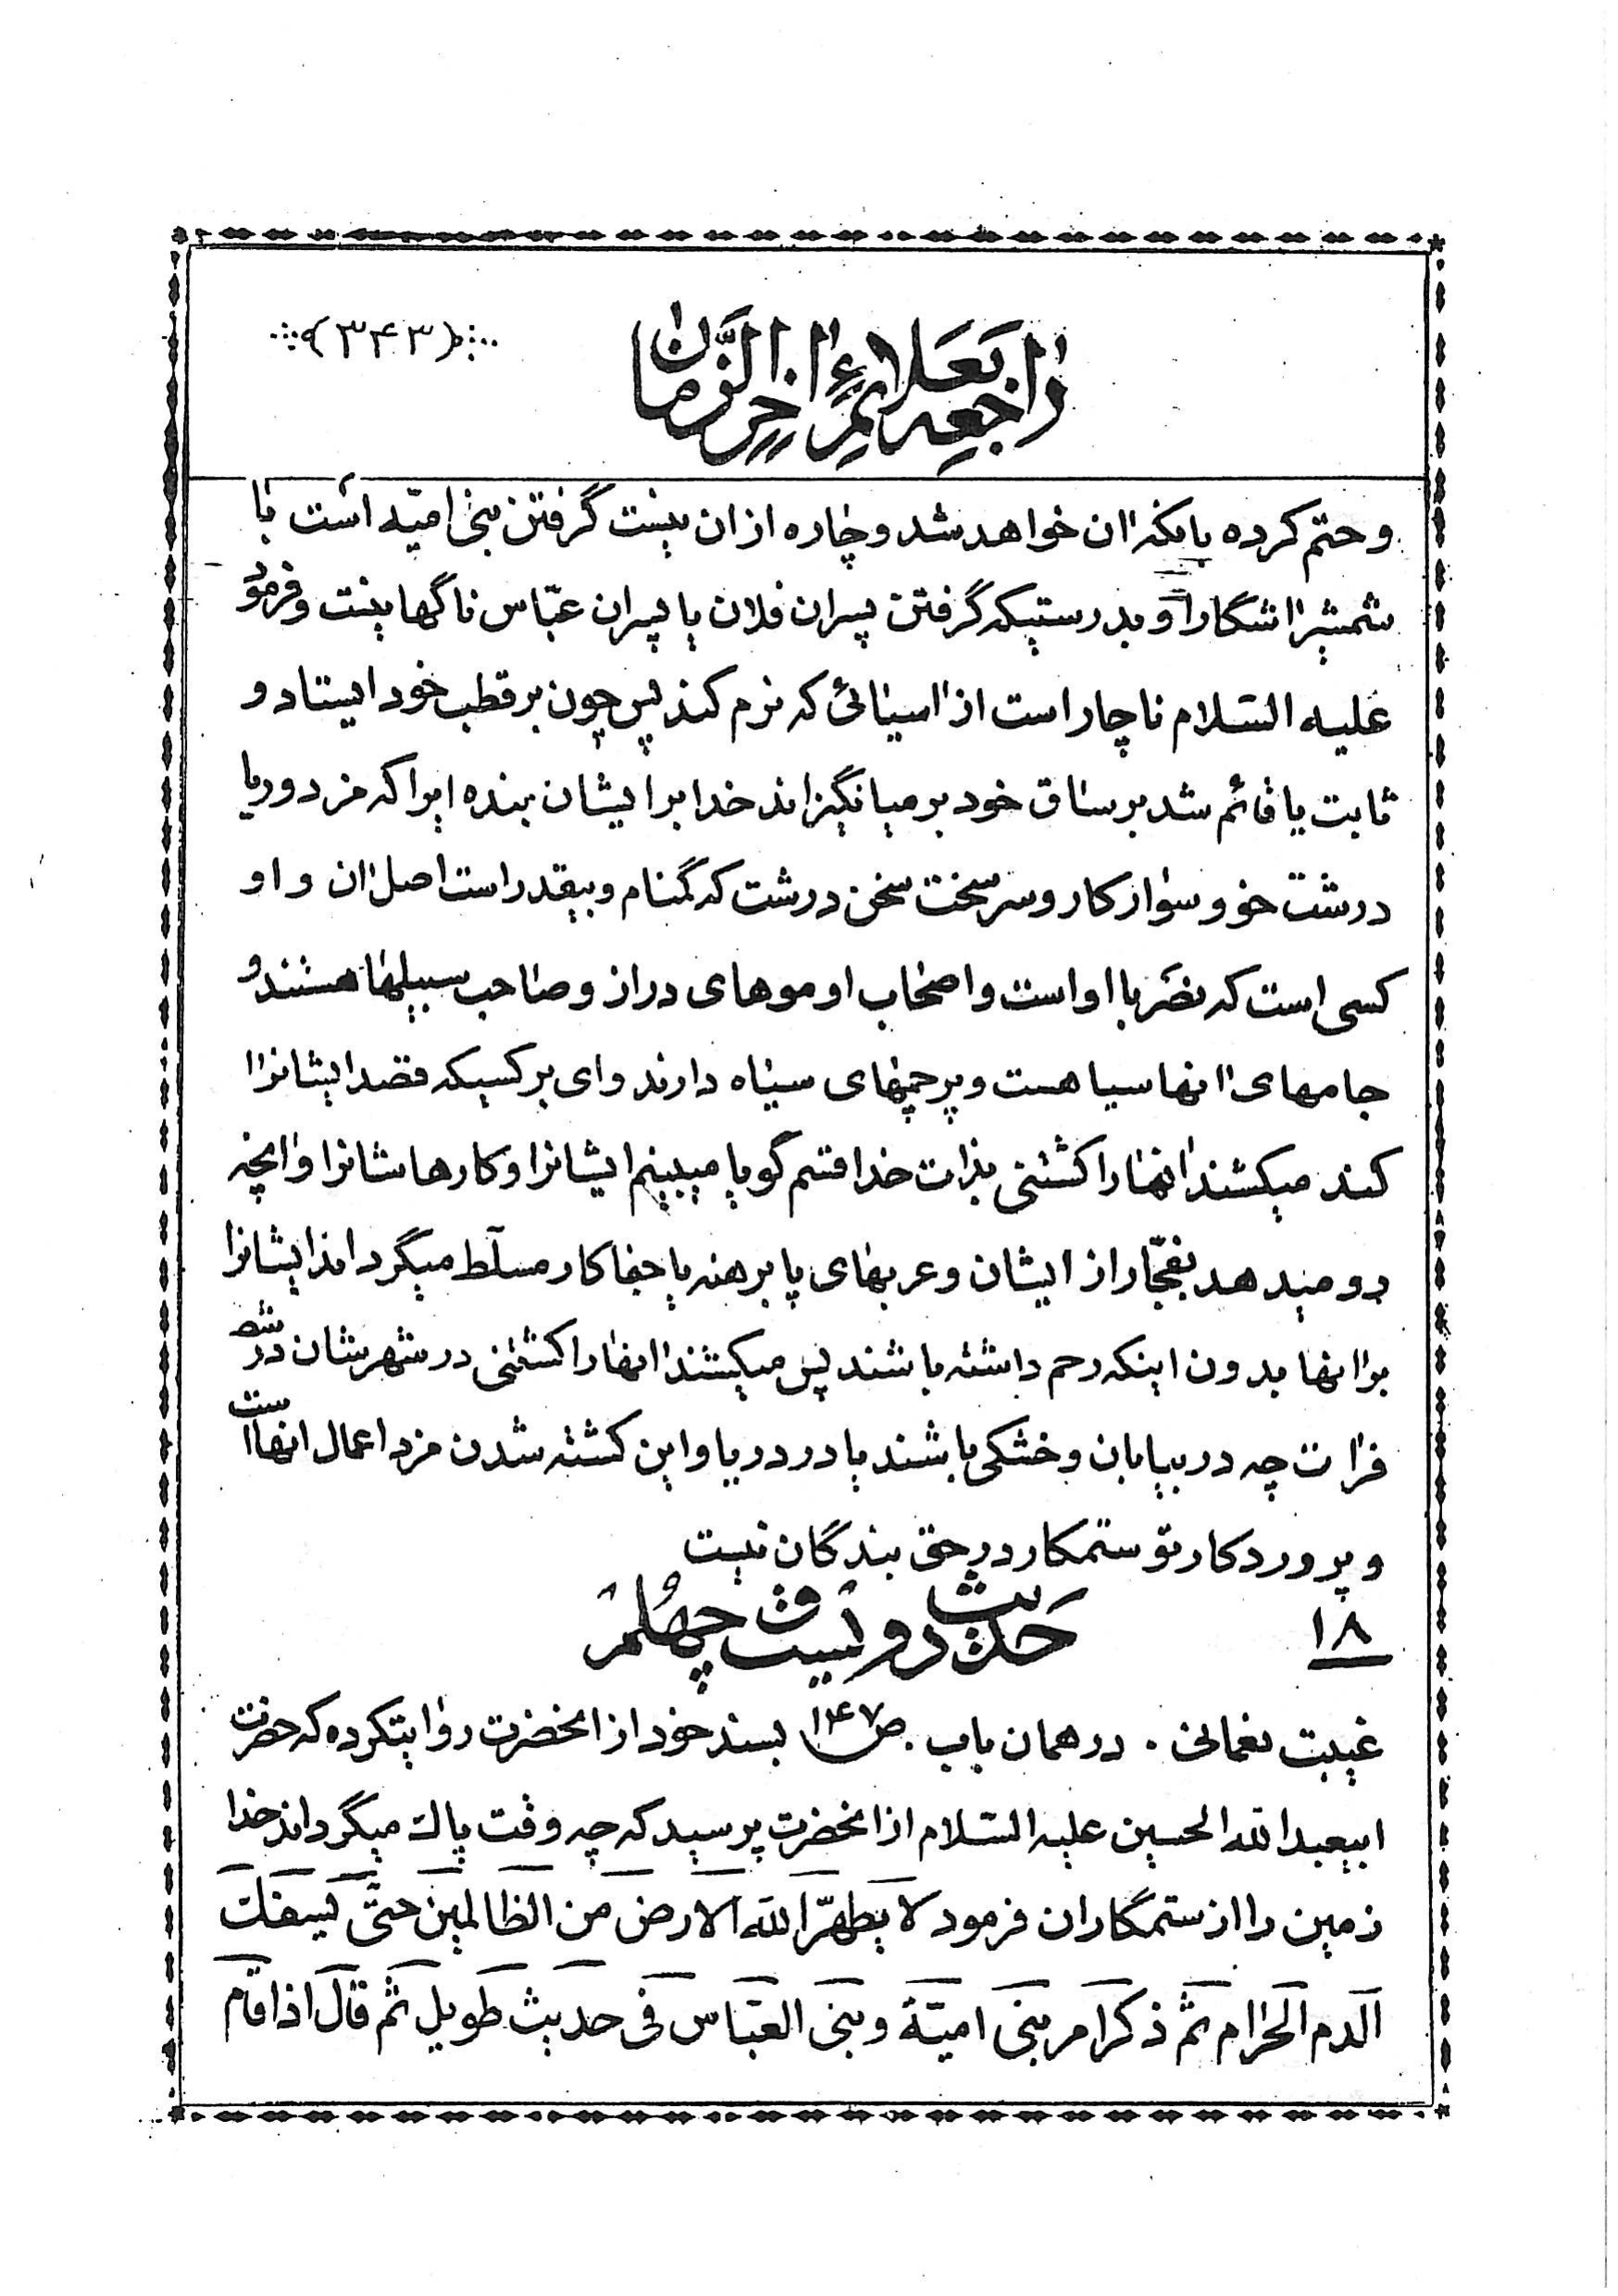 (۳۴۳)
راجعه بعلائم اخر الزّمان
و حتم کرده بانکه ان خواهد شد و چاره از ان نیست گرفتن بنی امیّه است با
شمشیر اشکارا و بدرستیکه گرفتن پسران فلان یا پسران عبّاس ناگهانیست و فرمود
علیه السّلام ناچار است از اسیائی که نرم کند پس چون بر قطب خود ایستاد و
ثابت یا قائم شد بر ساق خود بر میانگیزاند خدا بر ایشان بنده ایرا که مزدور یا
درشت خو و سوار کار و سر سخت سخن درشت که گمنام و بیقدر است اصل ان و او
کسی است که نصر با او است و اصحاب او موهای دراز و صاحب سبیلها هستند و
جامهای انها سیاهست و پرچمهای سیاه دارند وای بر کسیکه قصد ایشانرا
کند میکشند انها را کشتنی بذات خدا قسم گویا میبینم ایشانرا و کارهاشانرا و انچه
رو میدهد بفجّار از ایشان و عربهای پا برهنه یا جفاکار مسلّط میگرداند ایشانرا
بر انها بدون اینکه رحم داشته باشند پس میکشند انها را کشتنی در شهرشان در شط
فرات چه در بیابان و خشکی باشند یا در دریا و این کشته شدن مزد اعمال انها است
و پروردگار تو ستمکار در حق بندگان نیست
۱۸ حدیث دویست و چهلم
غیبت نعمانی . در همان باب . ص ۱۴۷ بسند خود از انحضرت روایتکرده که حضرت
ابیعبدالله الحسین علیه السّلام از انحضرت پرسید که چه وقت پاک میگرداند خدا
زمین را از ستمگاران فرمود لا یطهّر الله الارض من الظالمین حتّی یسفک
الدم الحرام ثم ذکر امر بنی امیّة و بنی العبّاس فی حدیث طویل ثم قال اذا قام